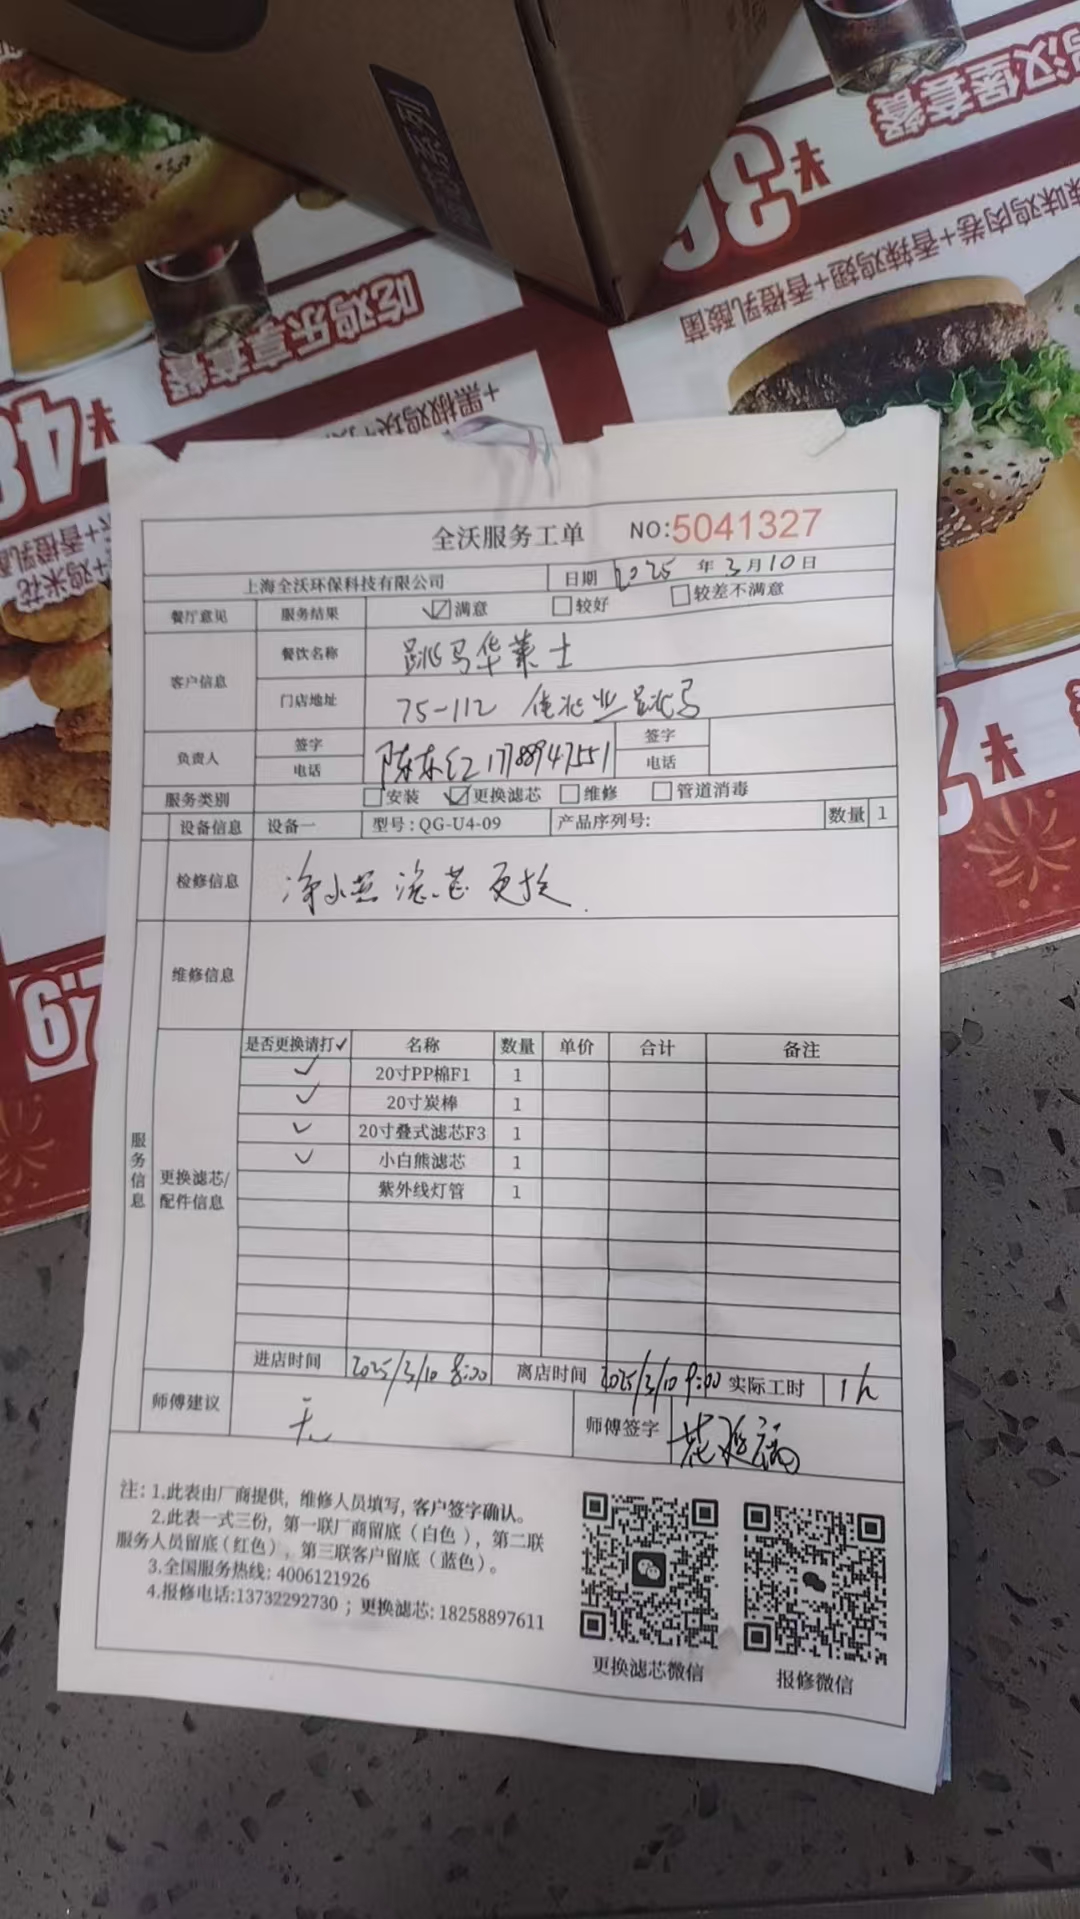 汉堡套餐
36
辣味鸡肉卷+香辣鸡翅+香橙乳酸菌
吃鸡乐享套餐
+黑椒鸡块
48
+鸡米花
+香橙乳酸
全沃服务工单 NO:5041327
上海全沃环保科技有限公司 日期 2025 年 3 月 10 日
餐厅意见 服务结果 ☑满意 □较好 □较差不满意
客户信息 餐饮名称 跳马华莱士
门店地址 75-112 佳兆业跳马
负责人 签字 陈东红 签字
电话 17889947551 电话
服务类别 □安装 ☑更换滤芯 □维修 □管道消毒
设备信息 设备一 型号:QG-U4-09 产品序列号: 数量 1
检修信息 净水器滤芯更换.
维修信息
服务信息
更换滤芯/配件信息
是否更换请打✓ 名称 数量 单价 合计 备注
✓ 20寸PP棉F1 1
✓ 20寸炭棒 1
✓ 20寸叠式滤芯F3 1
✓ 小白熊滤芯 1
紫外线灯管 1
进店时间 2025/3/10 8:00 离店时间 2025/3/10 9:00 实际工时 1h
师傅建议 无 师傅签字
注:1.此表由厂商提供,维修人员填写,客户签字确认。
2.此表一式三份,第一联厂商留底(白色),第二联
服务人员留底(红色),第三联客户留底(蓝色)。
3.全国服务热线:4006121926
4.报修电话:13732292730 ;更换滤芯:18258897611
更换滤芯微信 报修微信